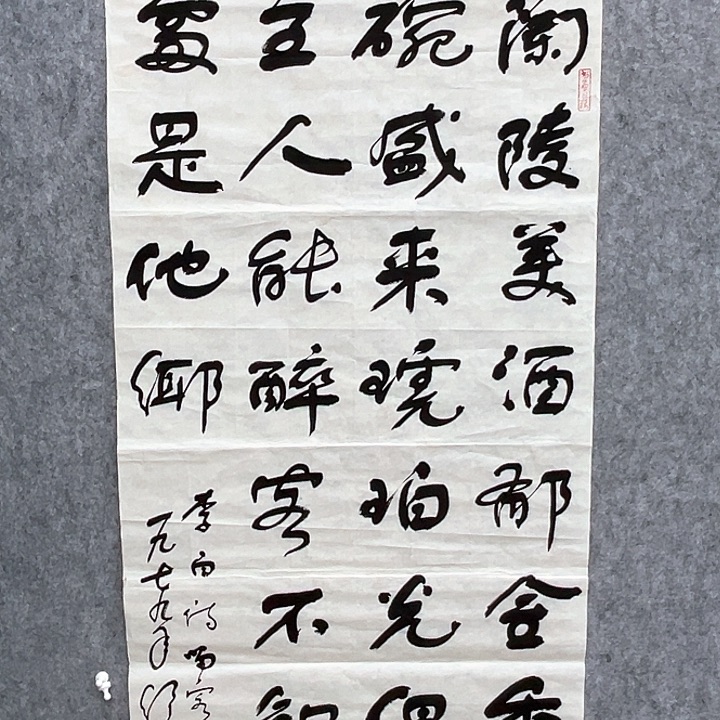 蘭陵美酒郁金香
碗盛来琥珀光但
主人能醉客不知
處是他鄉
李白诗客
一九七九年